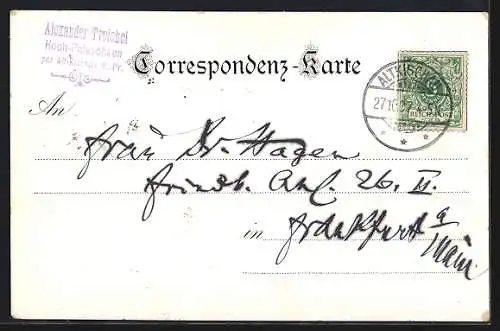 Alexander Treichel
Hoch-Paleschken
per Alt-Kischau W.-Pr.
Correspondenz-Karte
ALTKISCHAU
27.10.97 4-5N
REICHSPOST
An
Frau Dr. Hagen
Friedb. Anl. 26. II.
in Frankfurt a
Main